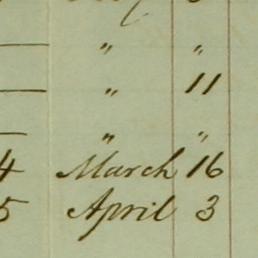 " "
" 11
" "
4 March 16
5 April 3